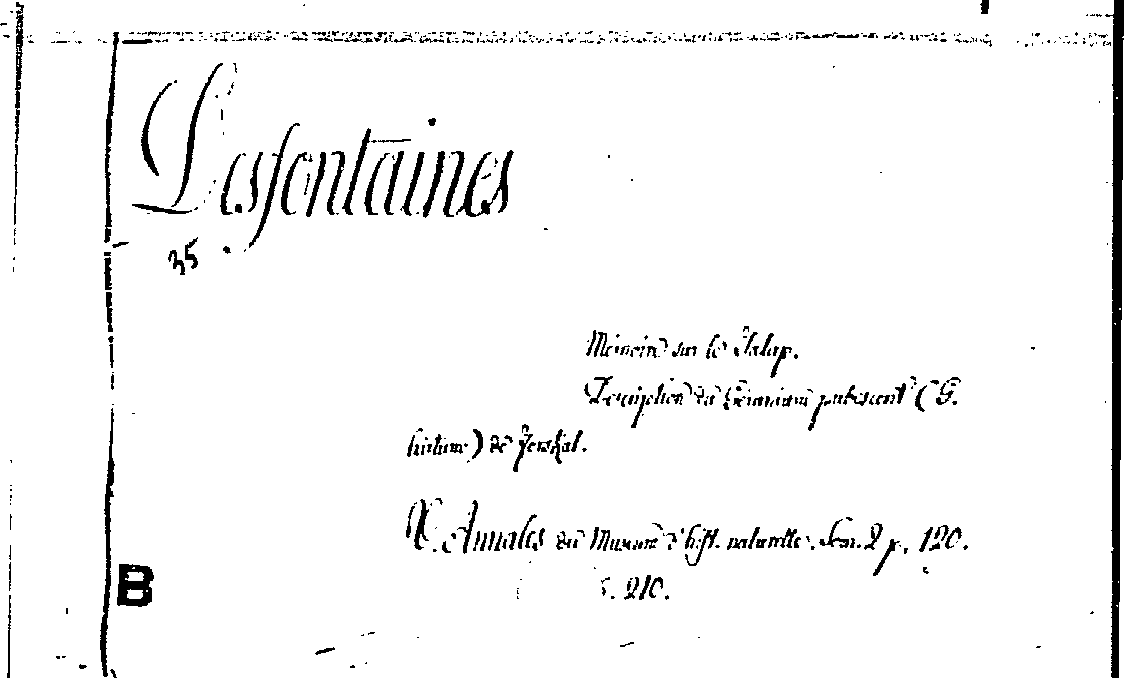 Desfontaines
35.
Mémoire sur le Jalap.
Description du Geranium pubescent (G.
hirtum) de Forskal.
V. Annales du Museum d'hist. naturelle. Tom. 2 p. 120.
B
210.